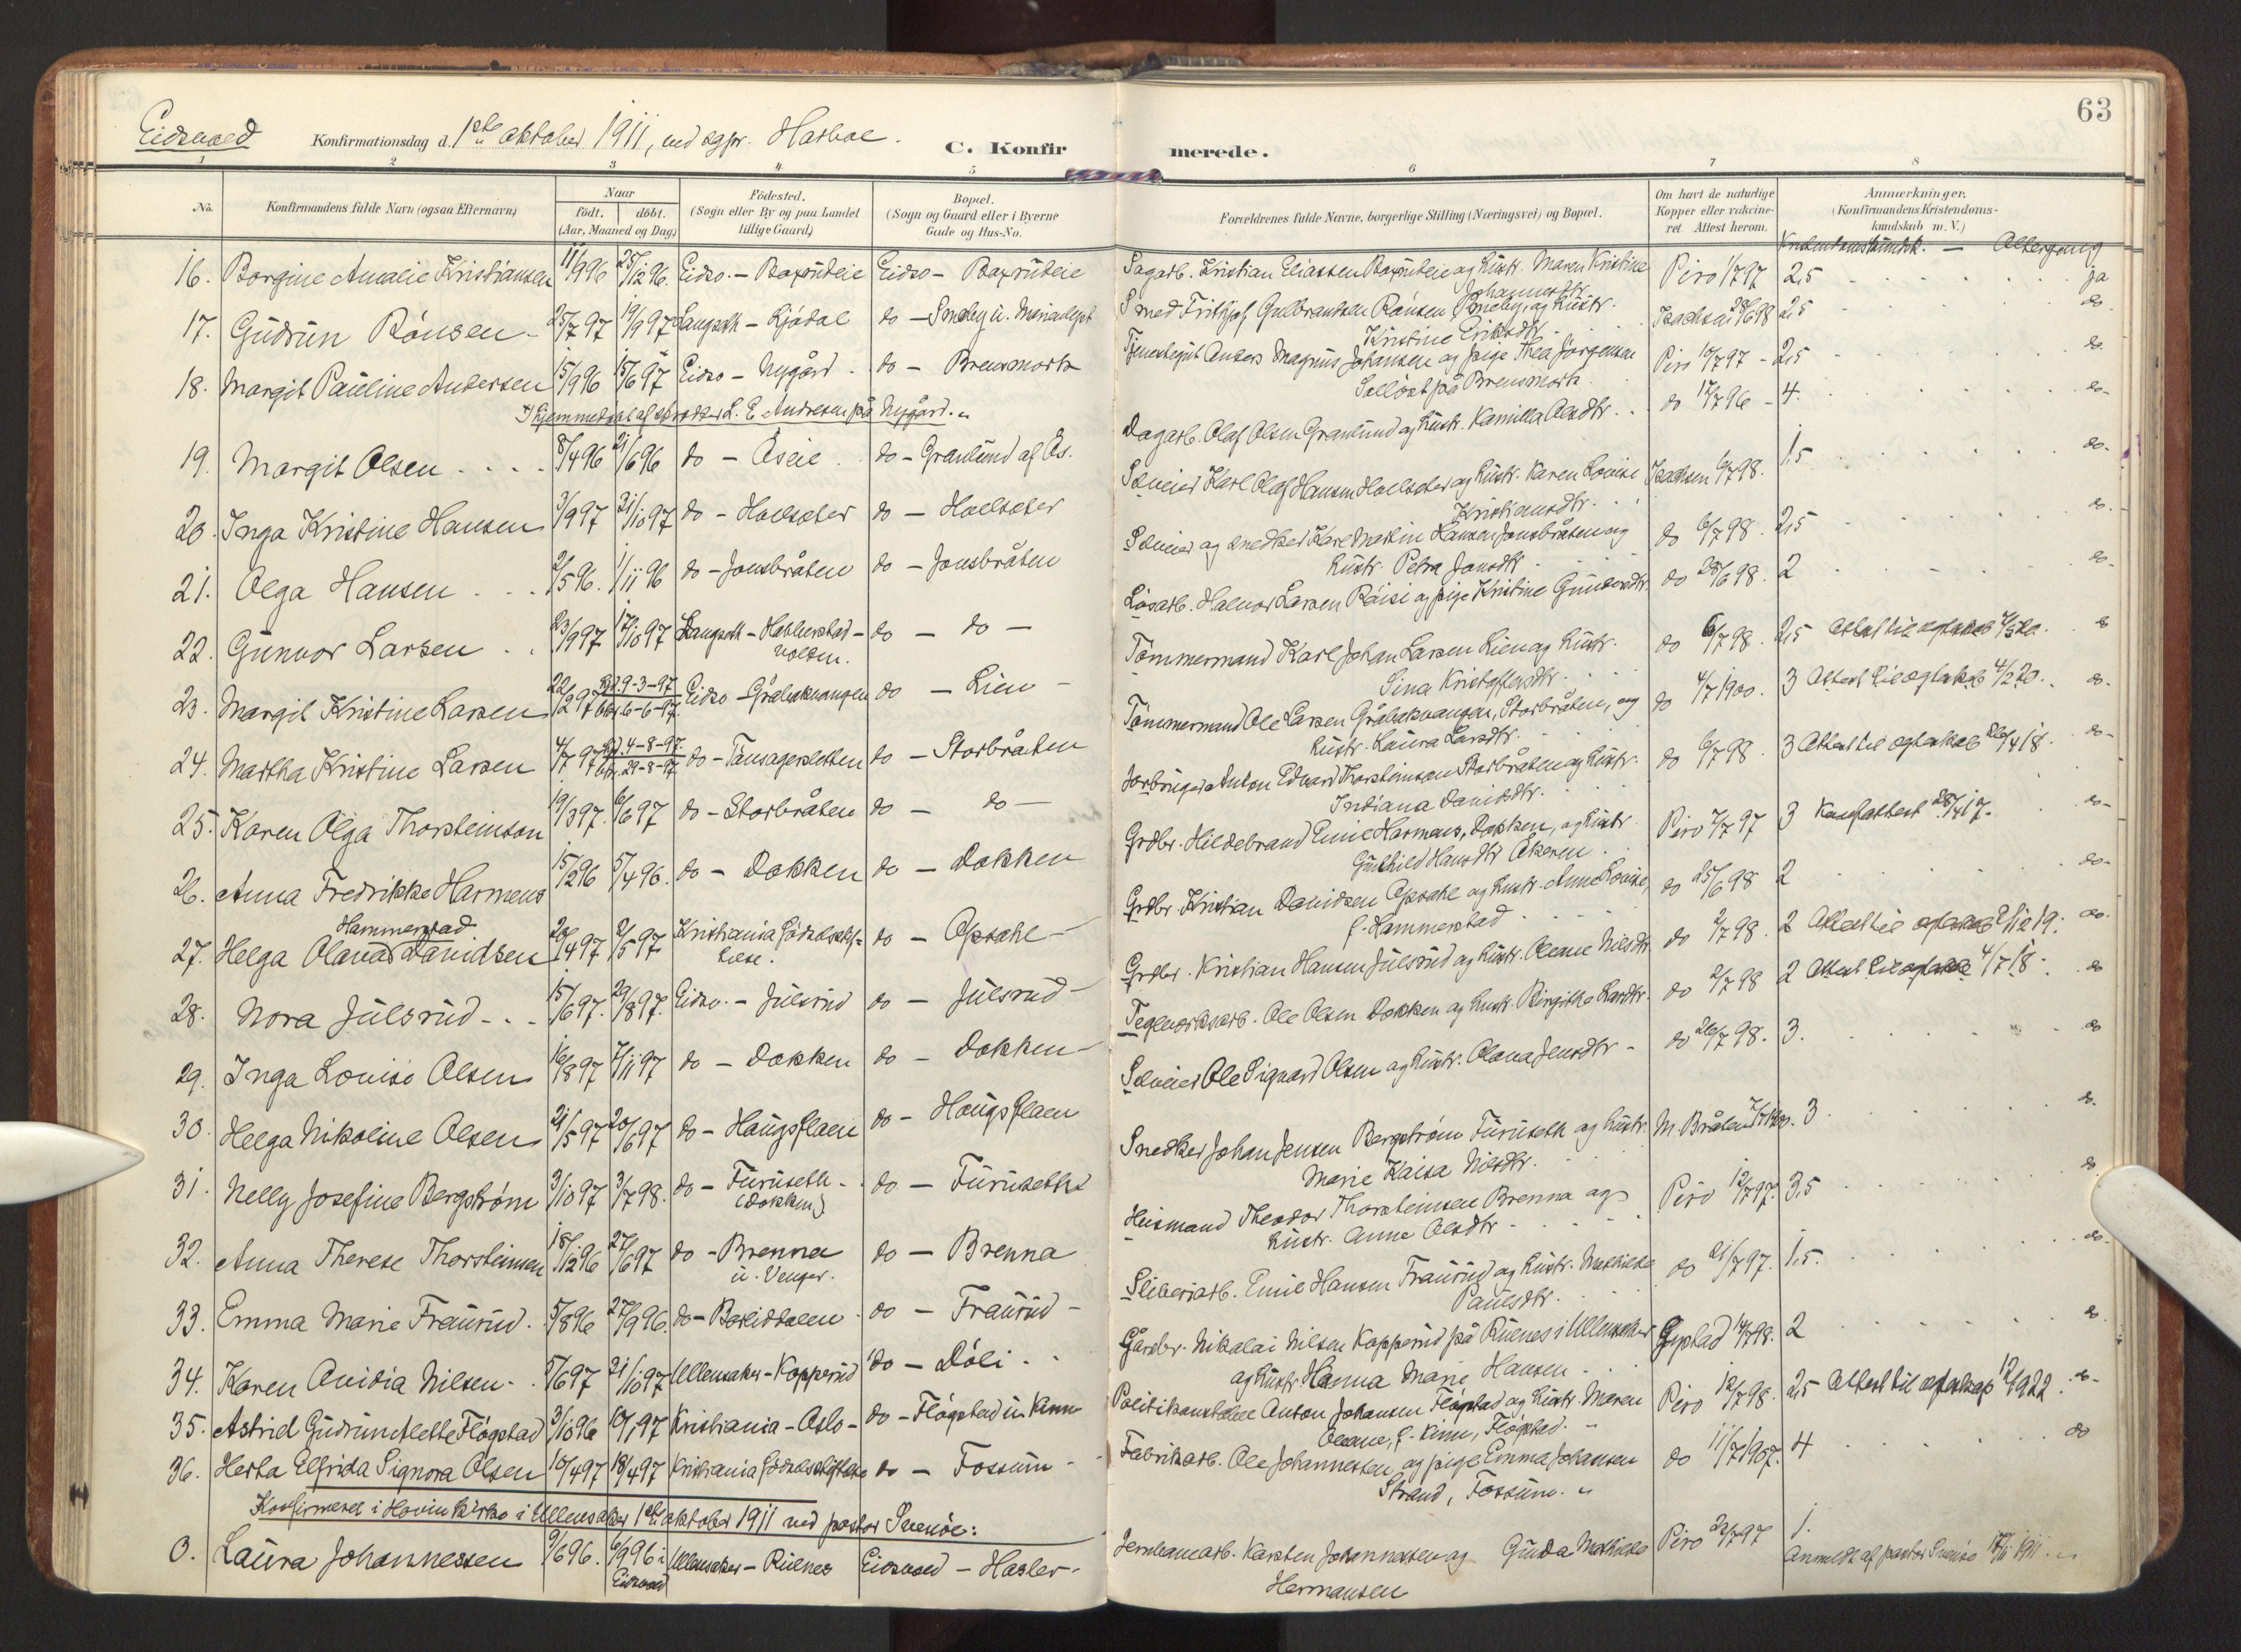 63
Eidsvold Konfirmationsdag d. 1ste oktober 1911, ved sgpr. Harboe.
C. Konfirmerede.
1 2 3 4 5 6 7 8
No. Konfirmandens fulde Navn (ogsaa Efternavn) Naar født. døbt. (Aar, Maaned og Dag) Fødested. (Sogn eller By og paa Landet tillige Gaard) Bopæl. (Sogn og Gaard eller i Byerne Gade og Hus-No. Forældrenes fulde Navne, borgerlige Stilling (Næringsvei) og Bopæl. Om havt de naturlige Kopper eller vakcineret. Attest herom. Anmærkninger. (Konfirmandens Kristendomskundskab m. V.)
Kristendomskundsk. — Altergang
16. Borgine Amalie Kristiansen 11/9 96 25/12 96. Eidsv. - Eidsv - Sagarb. Kristian Eliassen og hustr. Maren Kristine Johannesdtr. Piro 1/7 97 2,5 ja
17. Gudrun Rønsen - 25/7 97 19/9 97 Langseth - Ljødal do - Smeby u. Smed Frithjof Gulbrandsen Rønsen, Smeby, og hustr. Kristine Eriksdtr. Isachsen 28/6 98 2,5 do
18. Margit Pauline Andersen 15/9 96 15/6 97 Eidsv - Nygård do - Brensmork Tjenestegut Anders Magnus Johansen og pige Thea Jørgensen på Brensmork. Piro 10/7 97 - 2,5 do
Hjemmedøbt af L. E. Andresen på Nygård.
19. Margit Olsen 8/4 96 21/6 96 do - Åseie do - Granlund af Ås. Dagarb. Olaf Olsen Granlund og hustr. Kamilla Olsdtr. do 17/7 96 - 4. do
20. Inga Kristine Hansen 3/9 97 31/10 97 do - Hoelseter do - Hoelseter Selveier Karl Olaf Hansen Hoelseter og hustr. Karen Lovise Kristiansdtr. Isachsen 6/7 98. 1,5 do
21. Olga Hansen 2/5 96. 1/11 96 do - Jonsbråten do - Jonsbråten Selveier og snedker Karl Martin Hansen Jonsbråten og hustr. Petra Jonsdtr. do 6/7 98. 2,5 do
22. Gunvor Larsen 23/9 97 17/10 97 Langseth - do - do - Løsarb. Halvor Larsen Råisi og pige Kristine Gundersdtr. do 28/6 98. 2 do
23. Margit Kristine Larsen 22/2 97 9-3-97 6-6-97 Eidsv - Gråbakvangen do - Lien - Tømmermand Karl Johan Larsen Lien og hustr. Sina Kristoffersdtr. do 6/7 98. 2,5 Attest til egteskab do
24. Martha Kristine Larsen 4/7 97 4-8-97. 29-8-97 do - Tånsagersletten do - Storbråten Tømmermand Ole Larsen Gråbakvangen, Storbråten, og hustr. Laura Larsdtr. do 4/7 1900. 3 Attest til egteskab 4/2 20. do
25. Karen Olga Thorsteinson 19/3 97. 6/6 97 do - Storbråten do - do - Jordbruger Anton Edvard Thorsteinson Storbråten og hustr. Indiana Davidsdtr. do 6/7 98. 3 Attest til egteskab 26/4 18. do
26. Anna Fredrikke Harmens 15/2 96 5/4 96. do - Dokken do - Dokken Grdbr. Hildebrand Emil Harmens, Dokken, og hustr. Gunhild Hansdtr Åkeren. Piro 7/7 97 3 Konf.attest 28/4 17. do
27. Helga Olava Hammerstad Davidsen 20/4 97 2/5 97 Kristiania Fødselsstiftelse. do - Opsahl - Grdbr. Kristian Davidsen Opsahl og hustr. Anne Lovise, f. Hammerstad do 25/6 98 2 do
28. Nora Julsrud 15/6 97. 29/8 97. Eidsv. - Julsrud do - Julsrud Grdbr. Kristian Hansen Julsrud og hustr. Oleane Nilsdtr. do 2/7 98. 2 Attest til egteskab do
29. Inga Lovise Olsen 16/8 97 7/11 97 do - Dokken do - Dokken - Teglverksarb. Ole Olsen Dokken og hustr. Birgithe Larsdtr. do 2/7 98 2 Attest til egteskab 4/7 18. do
30. Helga Nikoline Olsen 21/5 97 20/6 97 do - Haugsflaen do - Haugsflaen Selveier Ole Sigvard Olsen og hustr. Olava Jensdtr - do 26/7 98. 3. do
31. Nelly Josefine Bergstrøm 3/10 97 3/7 98. do - Furuseth - (Dokken) do - Furuseth Snedker Johan Jensen Bergstrøm Furuseth og hustr. Marie Kaisa Nilsdtr. M. Bråten 3. do
32. Anna Therese Thorsteinsen 18/12 96 27/6 97 do - Brenna u. Venger. do - Brenna Husmand Theodor Thorsteinsen Brenna og hustr. Anne Olsdtr Piro 12/7 97. 3,5 do
33. Emma Marie Fraurud. 5/8 96 27/9 96. do - do - Fraurud - Sliberiarb. Emil Hansen Fraurud og hustr. Mathilde Paulsdtr. do 21/7 97. 1,5. do
34. Karen Ovidia Nilsen 5/6 97 21/10 97 Ullensaker - Kopperud do - Døli Gårdbr. Nikolai Nilsen Kopperud på Rulnes i Ullensaker og hustr. Hanna Marie Hansen Gystad 14/7 98. 2 do
35. Astrid Gudrun Alette Fløgstad 3/10 96 10/1 97 Kristiania - Oslo - do - Fløgstad u. Kinn Politikonstabel Anton Johansen Fløgstad og hustr. Maren Oleane, f. Kinn, Fløgstad. Piro 12/7 98. 2,5 Attest til egteskap 12/9 22. do
36. Herta Elfrida Signora Olsen 10/4 97 18/4 97 Kristiania Fødselsstiftelse do - Fossum Fabrikarb. Ole Johannessen og pige Emma Johansen Strand, Fossum. do 11/7 1907. 4 do
Konfirmeret i Hovin kirke i Ullensaker 1ste oktober 1911 ved pastor Svenøe:
0. Laura Johannessen 9/6 96. 6/9 96 i Eidsvold Ullensaker - Rulnes Eidsvold - Hasler Jernbanearb. Karsten Johannessen og Gunda Mathilde Hermansen Piro 22/7 97 1. Anmeldt af pastor Svenøe 17/11 1911.